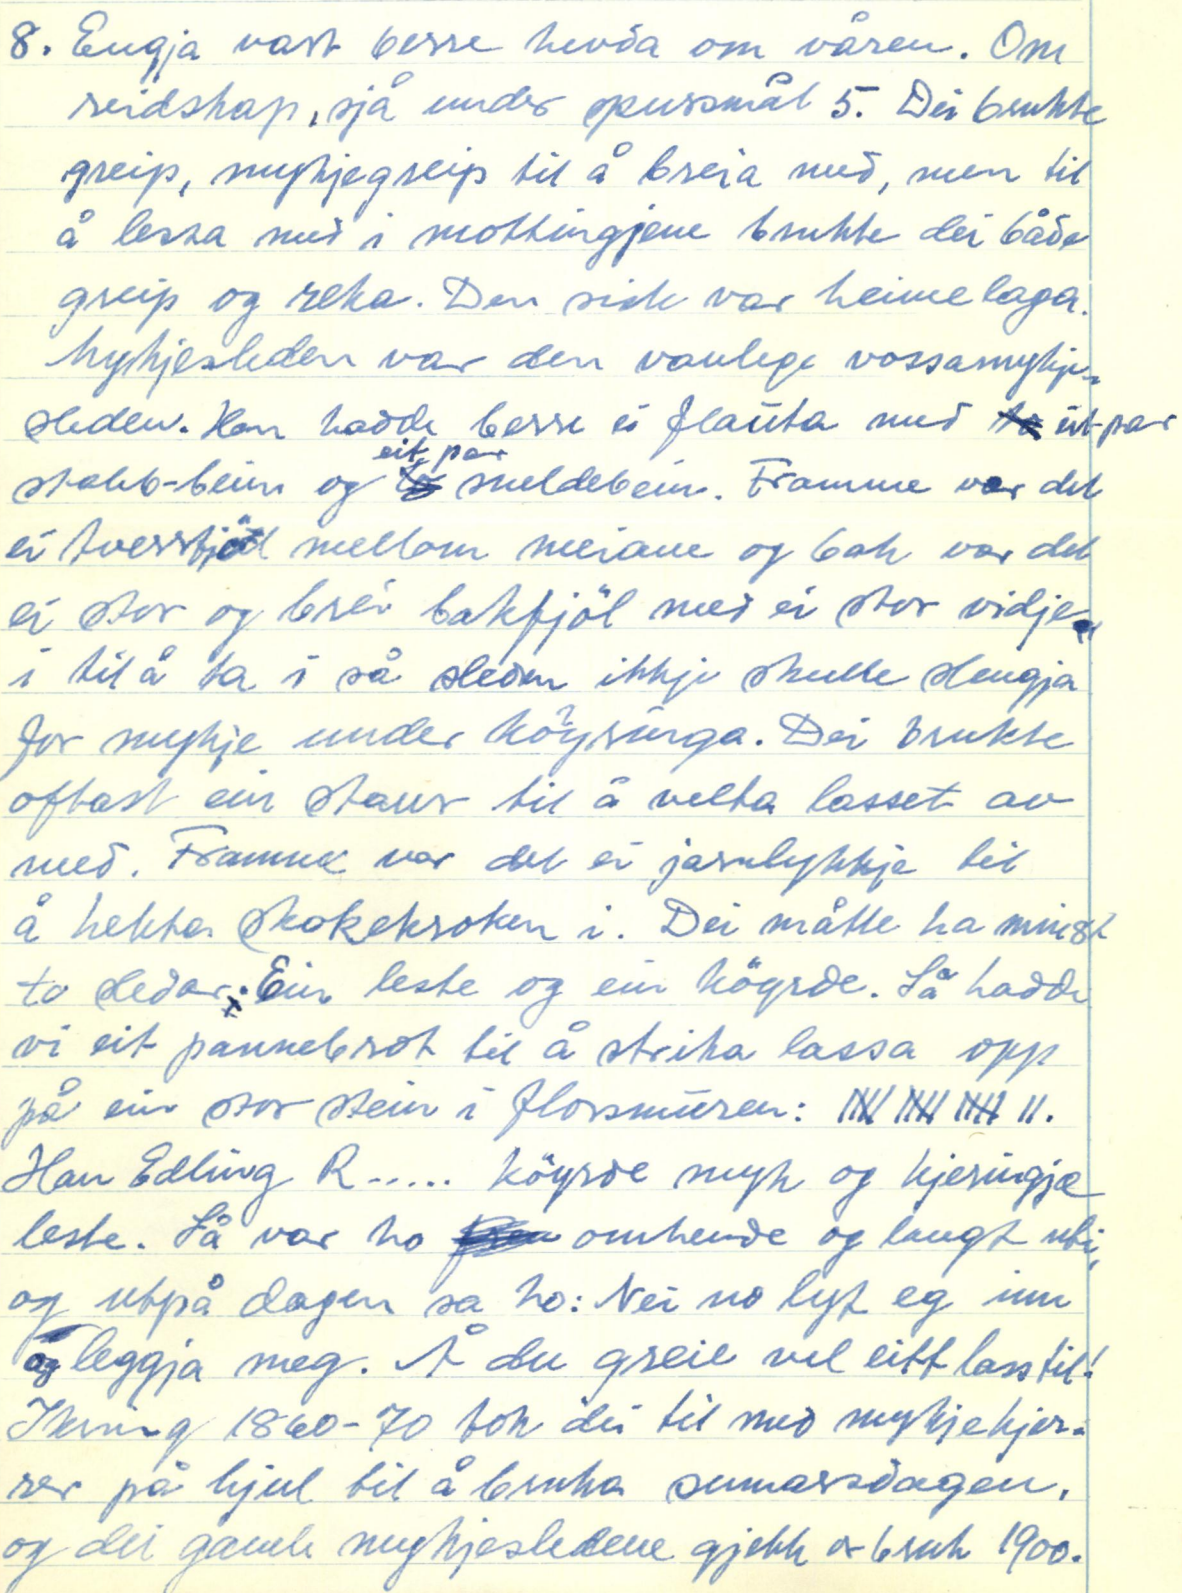 8. Engja vart berre hevda om våren. Om
reidskap, sjå under spursmål 5. Dei brukte
greip, mykjegreip til å breia med, men til
å lessa med i mottingjene brukte dei både
greip og reka. Den siste var heimelaga.
Mykjesleden var den vanlege vossamykje-
sleden. Han hadde berre ei flauta med eit par
stabb-bein og eit par meldebein. Framme var det
ei tverrfjöl mellom meiane og bak var det
ei stor og brei bakfjöl med ei stor vidje
i til å ta i så sleden ikkje skulle slengja
for mykje under köyringa. Dei brukte
oftast ein staur til å velta lasset av
med. Framme var det ei jarnlykkje til
å hekta skokekroken i. Dei måtte ha minst
to sledar. Ein leste og ein köyrde. Så hadde
vi eit pannebrot til å strika lassa opp
på ein stor stein i florsmuren: 卌 卌 卌 II.
Han Edling R..... köyrde myk og kjeringjæ
leste. Så var ho omhende og langt uti,
og utpå dagen sa ho: Nei no lyt eg inn
og leggja meg. Å du greie vel eitt lass til!
Ikring 1860-70 tok dei til med mykjekjer-
rer på hjul til å bruka sumarsdagen,
og dei gamle mykjesledene gjekk or bruk 1900.